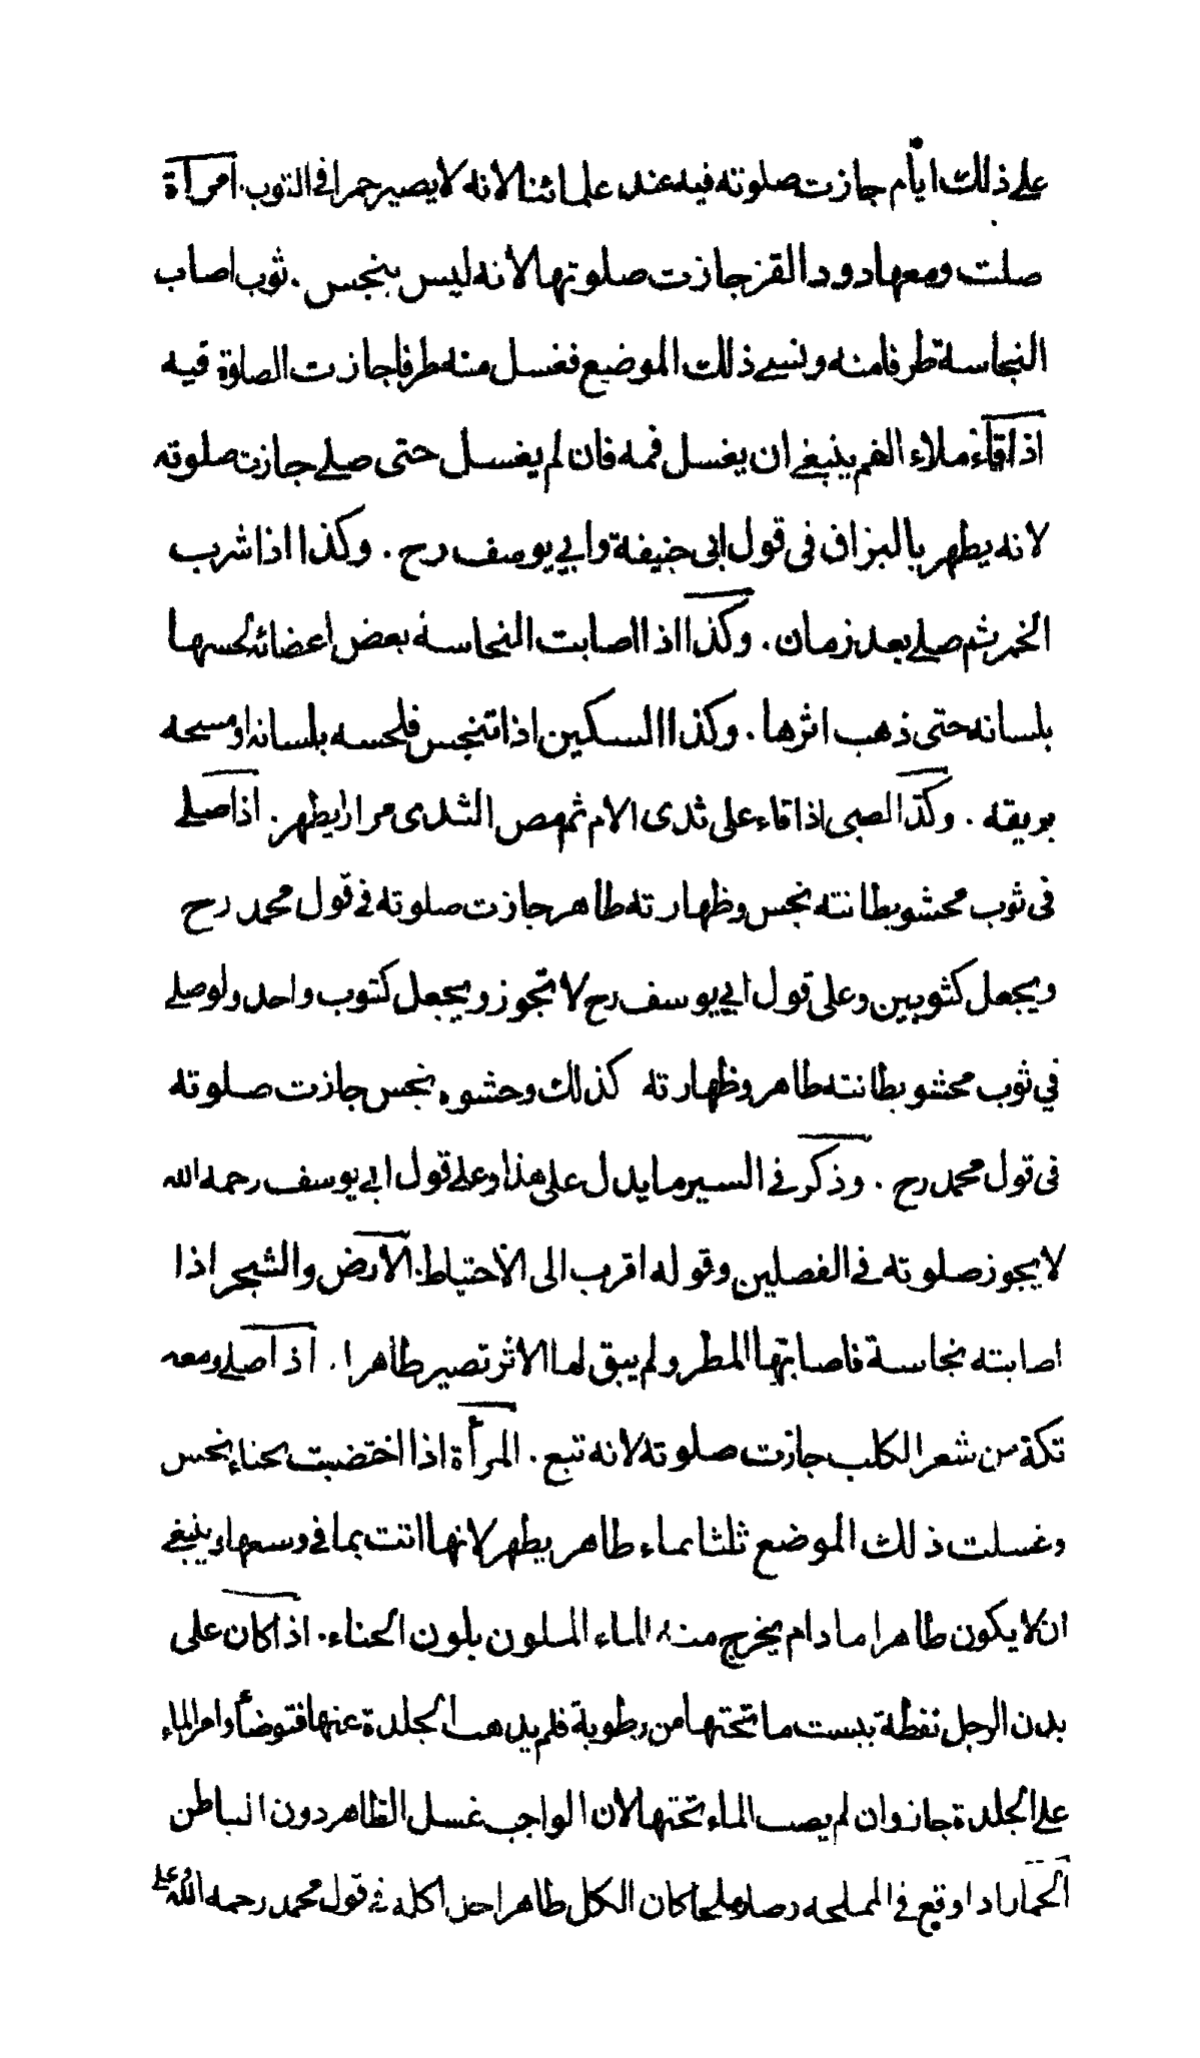 على ذلك ايام جازت صلوته فيه عند علمائنا لانه لا يصير خمرا في الثوب. امرأة
صلت ومعها دود القز جازت صلوتها لانه ليس بنجس . ثوب اصاب
النجاسة طرفا منه ونسي ذلك الموضع فغسل منه طرفا جازت الصلوة فيه
اذا قاء ملاء الفم ينبغي ان يغسل فمه فان لم يغسل حتى صلى جازت صلوته
لانه يطهر بالبزاق في قول ابي حنيفة وابي يوسف رح . وكذا اذا شرب
الخمر ثم صلى بعد زمان . وكذا اذا اصابت النجاسة بعض اعضائه لحسها
بلسانه حتى ذهب اثرها . وكذا السكين اذا تنجس فلحسه بلسانه او مسحه
بريقه . وكذا الصبي اذا قاء على ثدى الام ثم مص الثدى مرارا يطهر . اذا صلى
في ثوب محشو بطانته نجس وظهارته طاهر جازت صلوته في قول محمد رح
ويجعل كثوبين وعلى قول ابي يوسف رح لا تجوز ويجعل كثوب واحد ولو صلى
في ثوب محشو بطانته طاهر وظهارته كذلك وحشوه نجس جازت صلوته
في قول محمد رح . وذكر في السير ما يدل على هذا وعلى قول ابي يوسف رحمه الله
لا يجوز صلوته في الفصلين وقوله اقرب الى الاحتياط. الارض والشجر اذا
اصابته نجاسة فاصابتها المطر ولم يبق لها الاثر تصير طاهرا . اذا صلى ومعه
تكة من شعر الكلب جازت صلوته لانه تبع . المرأة اذا اختضبت بحناء نجس
وغسلت ذلك الموضع ثلثا بماء طاهر يطهر لانها اتت بما في وسعها وينبغي
ان لا يكون طاهرا ما دام يخرج منه الماء الملون بلون الحناء. اذا كان على
بدن الرجل نفطة يبست ما تحتها من رطوبة فلم يذهب الجلدة عنها فتوضأ وامر الماء
على الجلدة جاز وان لم يصب الماء تحتها لان الواجب غسل الظاهر دون الباطن
الحمار اذا وقع في المملحة وصار ملحا كان الكل طاهرا حل اكله في قول محمد رحمه الله وعلى